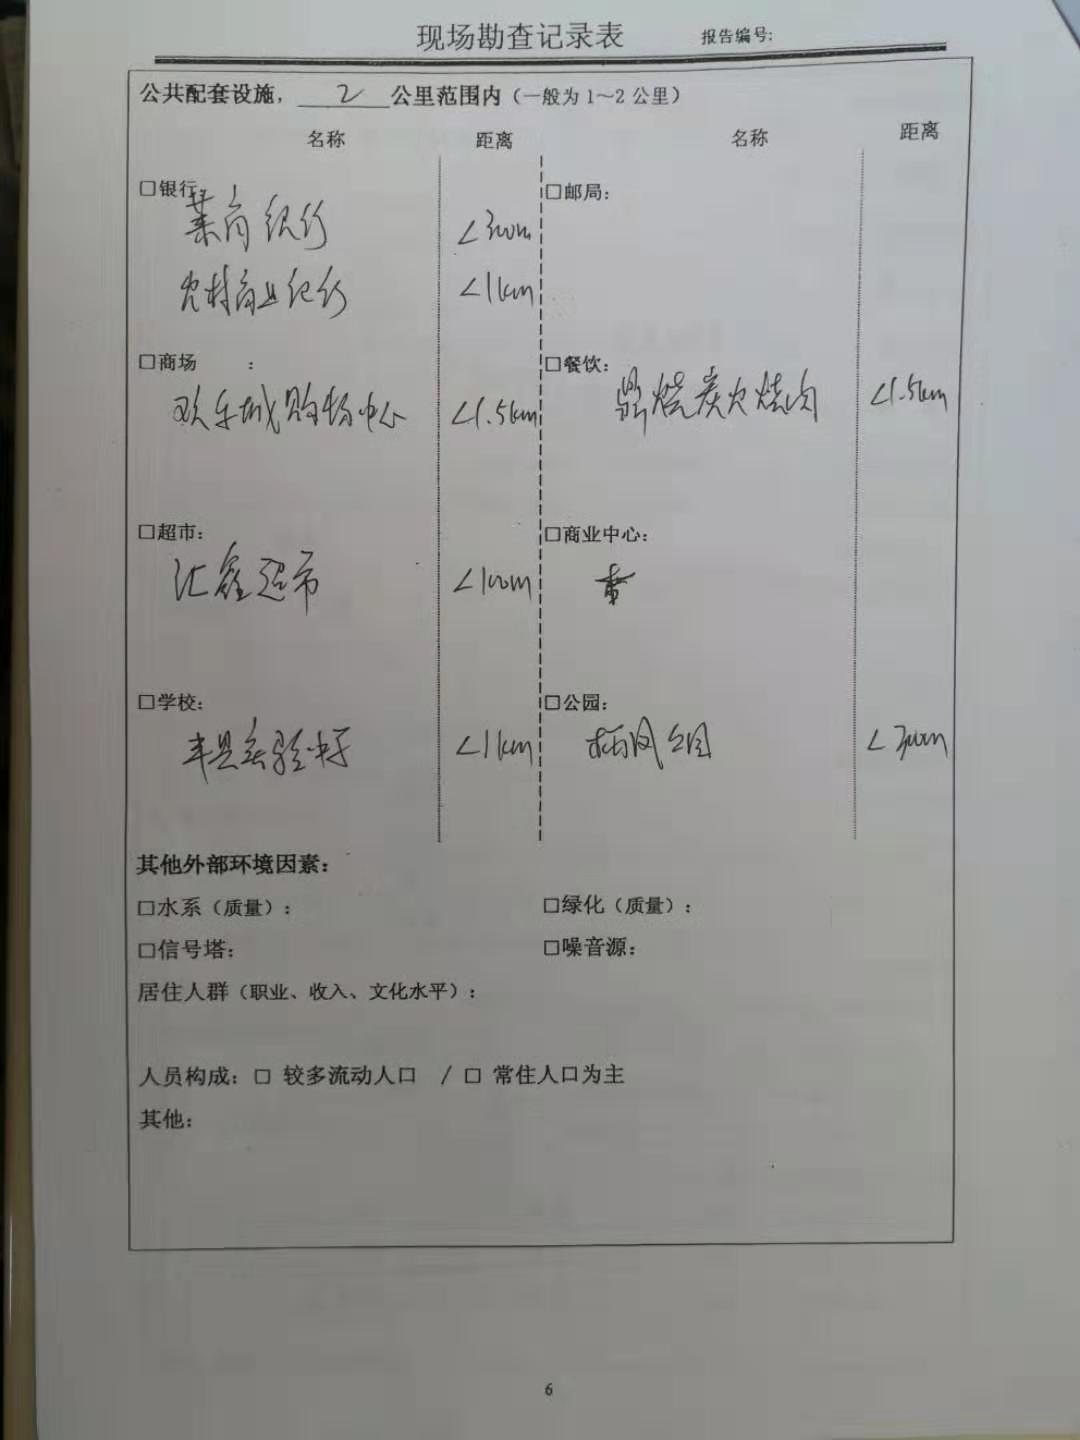 现场勘查记录表 报告编号:
公共配套设施, 2 公里范围内(一般为1~2公里)
名称 距离 名称 距离
□银行: □邮局:
莱商银行 <300m
农村商业银行 <1km
□商场 : □餐饮:
欢乐城购物中心 <1.5km 鼎燃炭火烧肉 <1.5km
□超市: □商业中心:
汇鑫超市 <100m
□学校: □公园:
丰县实验中学 <1km 栖凤公园 <300m
其他外部环境因素:
□水系(质量): □绿化(质量):
□信号塔: □噪音源:
居住人群(职业、收入、文化水平):
人员构成: □ 较多流动人口 / □ 常住人口为主
其他:
6